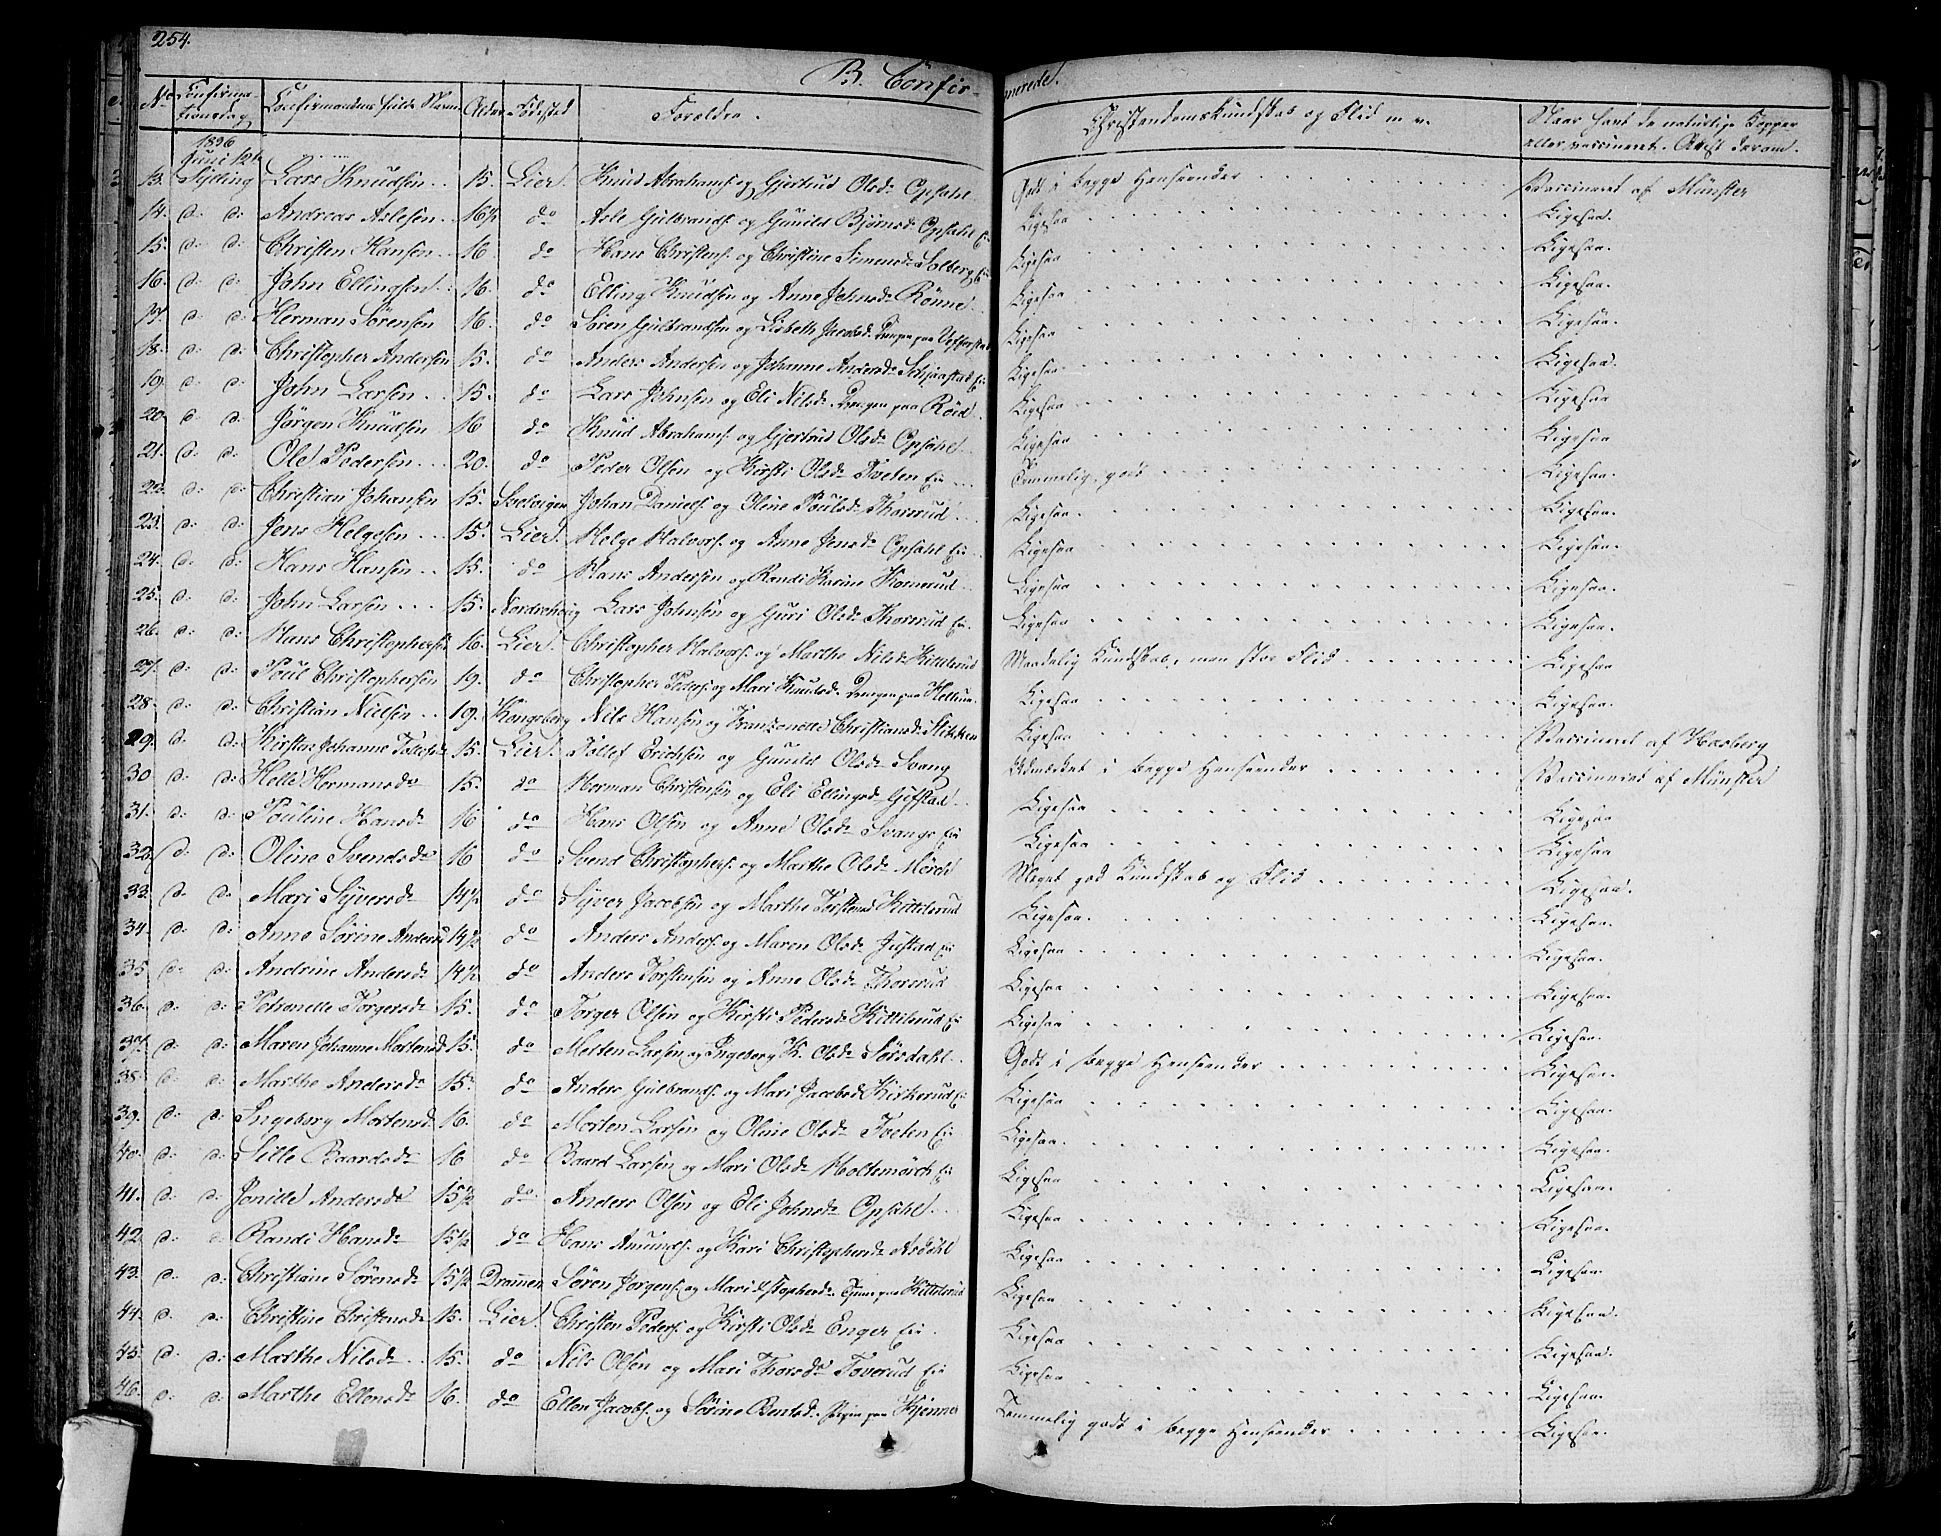 254.
B. Confirmerede.
No Confirmationsdag Confirmandens fulde Navn Alder Födested Forældre. Christendomskundskab og Flid m. v. Naar havt de naturlige Kopper eller vaccineret. Attest derom.
1836
Juni 12te
13. Sylling Lars Knudsen 15. Lier. Knud Abrahams. og Gjertrud Olsdr Opsahl Godt i begge Henseender Vaccineret af Münster
14. d: d: Andreas Aslesen 16½ do Asle Gulbrands. og Gunild Björnsdr Opsahl Ei Ligesaa Ligesaa.
15. d: d: Christen Hansen 16 do Hans Christens. og Christine Simensdr Solberg Ei Ligesaa Ligesaa.
16. d: d: John Ellingsen 16. do Elling Knudsen og Anne Johnsdr Rönne Ligesaa Ligesaa.
17. d: d: Herman Sörensen 16. do Sören Gulbrandsen og Lisbeth Jacobsd. Ligesaa Ligesaa.
18. d: d: Christopher Andersen 15. do Anders Andersen og Johanne Andersdr Schjaastad Ei Ligesaa Ligesaa.
19. d: d: John Larsen 15. do Lars Johnsen og Eli Nilsdr Röid Ligesaa Ligesaa
20. d: d: Jörgen Knudsen 16 do Knud Abrahams. og Gjertrud Olsdr Opsahl Ligesaa Ligesaa
21. d: d: Ole Pedersen 20. do Peder Olsen og Kirsti Olsdr Tveten Ei Temmelig godt Ligesaa.
22. d: d: Christian Johansen 15. Svelvigen Johan Daniels. og Oline Poulsdr Thorsrud Ligesaa. Ligesaa.
23. d: d: Jens Helgesen 15. Lier. Helge Halvors. og Anne Jensdr Opsahl Ei Ligesaa Ligesaa.
24. d: d: Hans Hansen 15. do Hans Andersen og Randi Karine Kornerud Ligesaa Ligesaa.
25. d: d: John Larsen 15. Norderhoug Lars Johnsen og Guri Olsdr Thorsrud Ei Ligesaa Ligesaa.
26. d: d: Hans Christophersen 16. Lier. Christopher Halvors. og Marthe Nilsdr Kittilsrud Maadelig Kundskab, men stor Flid Ligesaa
27. d: d: Poul Christophersen 19. do Christopher Peders. og Mari Knudsdr Ligesaa Ligesaa.
28. d: d: Christian Nielsen 19. Kongsberg Nils Hansen og Franzenette Christiansdr Ligesaa Vaccineret af Hasberg
29. d: d: Kirsten Johanne Tollefsdr 15. Lier. Tollef Erichsen og Gunild Olsdr Svang Udmærket i begge Henseender Vaccineret af Münster
30 d: d: Helle Hermansdr 15. do Herman Christensen og Eli Ellingsdr Gifstad Ligesaa Ligesaa
31. d: d: Pouline Hansdr 16 do Hans Olsen og Anne Olsdr Svangs Ei Ligesaa Ligesaa
32. d: d: Oline Svendsdr 16 do Svend Christophers. og Marthe Olsdr Mörch Meget god Kundskab og Flid Ligesaa.
33. d: d: Mari Syversdr 14½ do Syver Jacobsen og Marthe Torstensd Kittilsrud Ligesaa. Ligesaa.
34. d: d: Anne Sörine Andersd 14½ do Anders Anders. og Maren Olsdr Justad Ei Ligesaa Ligesaa.
35. d: d: Andrine Andersdr 14½ do Anders Torstensen og Anne Olsdr Thorsrud Ligesaa Ligesaa.
36. d: d: Petronelle Torgersdr 15. do Torger Olsen og Kirsti Pedersdr Kittilsrud Ei Ligesaa Ligesaa.
37. d: d: Maren Johanne Mortensd 15. do Morten Larsen og Ingeborg K. Olsdr Sörsdahl Godt i begge Henseender Ligesaa.
38. d: d: Marthe Andersdr 15. do Anders Gulbrands. og Mari Jacobsd Kirkerud Ei Ligesaa Ligesaa.
39. d: d: Ingeborg Mortensd 16. do Morten Larsen og Oline Olsdr Tveten Ei Ligesaa. Ligesaa.
40. d: d: Sille Baardsdr 16 do Baard Larsen og Mari Olsdr Holtsmörch Ei Ligesaa Ligesaa.
41. d: d: Jonille Andersdr 15½ do Anders Olsen og Eli Johnsdr Opsahl Ligesaa Ligesaa.
42. d: d: Randi Hansdr 15½ do Hans Amunds. og Kari Christophersdr Ligesaa Ligesaa.
43. d: d: Christiane Sörensdr 15½ Drammen Sören Jörgens. og Mari Kittilsrud Ligesaa Ligesaa.
44. d: d: Christine Christensdr 15. Lier. Christen Peders. og Kirsti Olsdr Enger Ei Ligesaa Ligesaa.
45. d: d: Marthe Nilsdr 15. do Nils Olsen og Mari Thorsdr Toverud Ei Ligesaa Ligesaa.
46. d: d: Marthe Ellensdr 16. do Ellen Jacobs. og Sörine Bentsd. Kjenner Temmelig godt i begge Henseender Ligesaa.